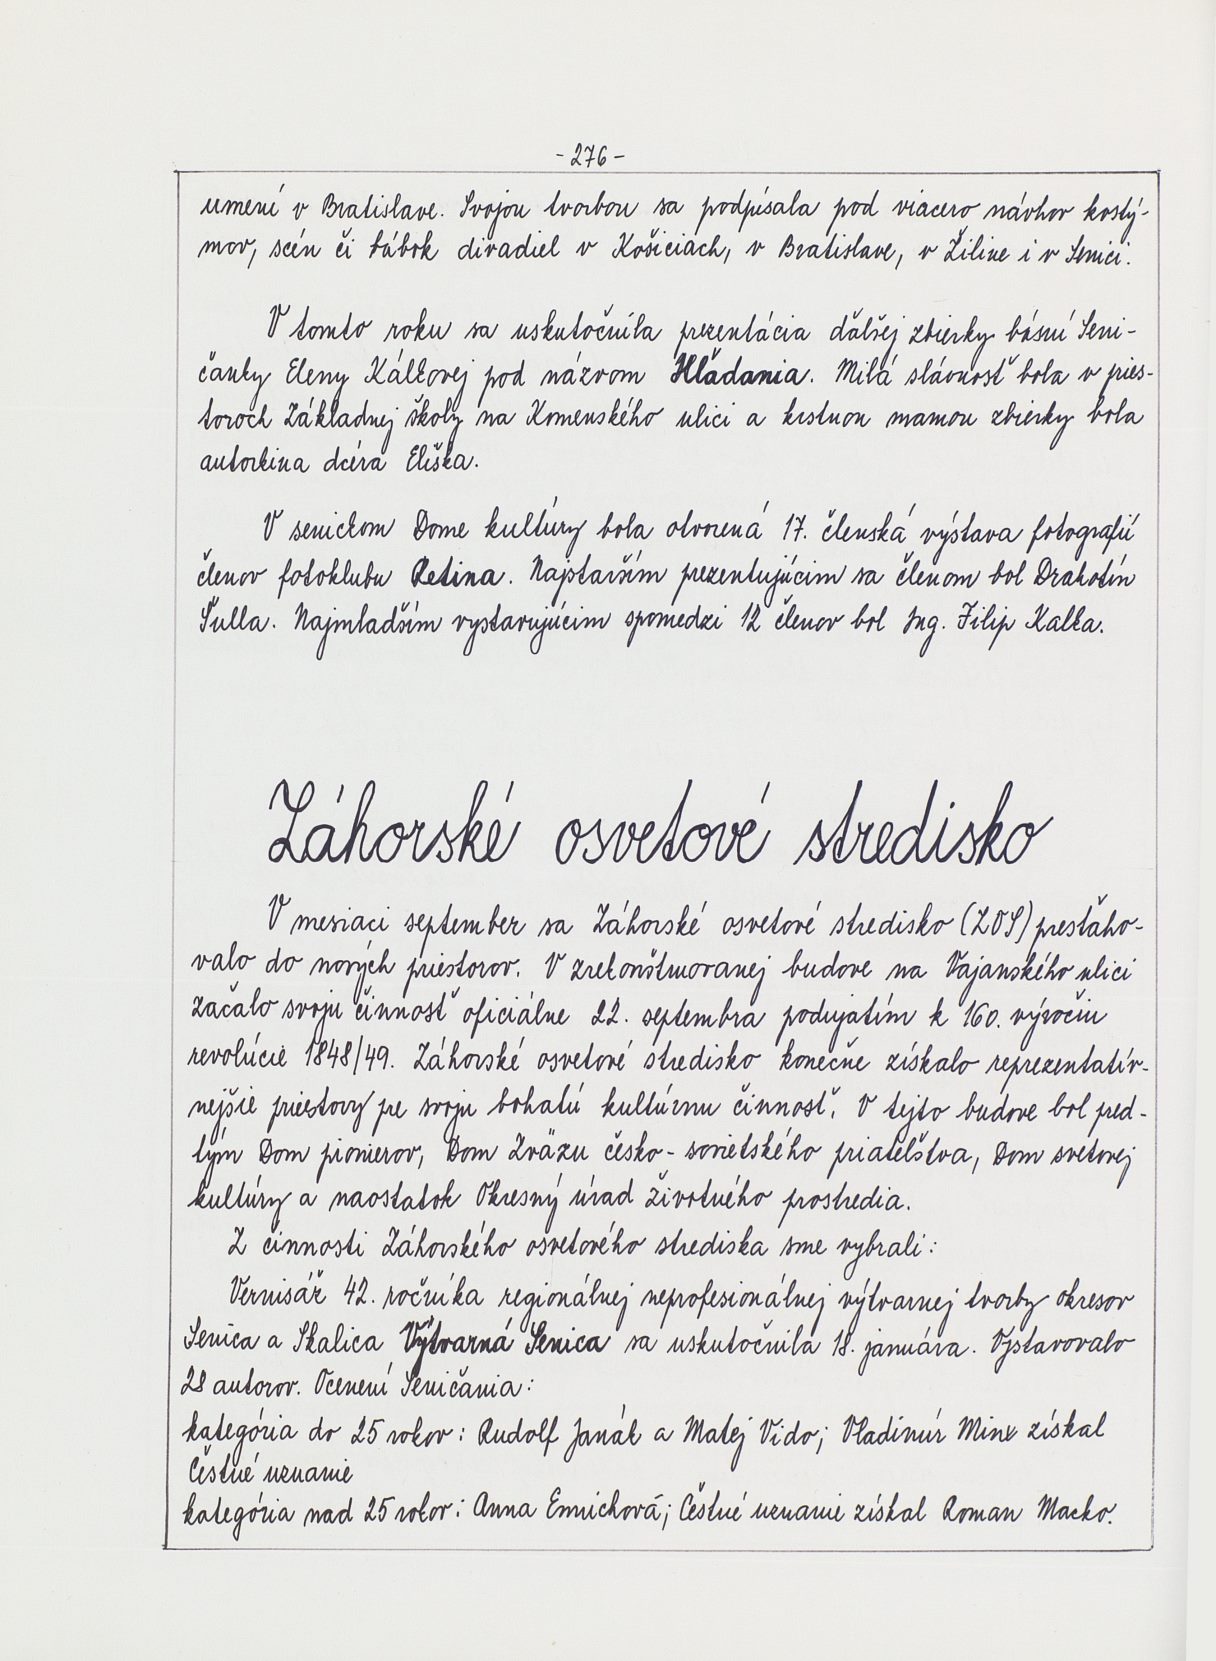 - 276 -
umení v Bratislave. Svojou tvorbou sa podpísala pod viacero návhov kostý-
mov, scén či bábok divadiel v Košiciach, v Bratislave, v Žiline i v Senici.
V tomto roku sa uskutočnila prezentácia ďalšej zbierky básní Seni-
čanky Eleny Kálkovej pod názvom Hľadania. Milá slávnosť bola v pries-
toroch Základnej školy na Komenského ulici a krstnou mamou zbierky bola
autorkina dcéra Eliška.
V senickom Dome kultúry bola otvorená 17. členská výstava fotografií
členov fotoklubu Retina. Najstarším prezentujúcim sa členom bol Drahotín
Šulla. Najmladším vystavujúcim spomedzi 12 členov bol Ing. Filip Kalka.
Záhorské osvetové stredisko
V mesiaci september sa Záhorské osvetové stredisko (ZOS) presťaho-
valo do nových priestorov. V zrekonštruovanej budove na Vajanského ulici
začalo svoju činnosť oficiálne 22. septembra podujatím k 160. výročiu
revolúcie 1848/49. Záhorské osvetové stredisko konečne získalo reprezentatív-
nejšie priestory pre svoju bohatú kultúrnu činnosť. V tejto budove bol pred-
tým Dom pionierov, Dom Zväzu česko-sovietského priateľstva, Dom svetovej
kultúry a naostatok Okresný úrad životného prostredia.
Z činnosti Záhorského osvetového strediska sme vybrali:
Vernisáž 42. ročníka regionálnej neprofesionálnej výtvarnej tvorby okresov
Senica a Skalica Výtvarná Senica sa uskutočnila 18. januára. Vystavovalo
28 autorov. Ocenení Seničania:
kategória do 25 rokov: Rudolf Janák a Matej Vido; Vladimír Minx získal
Čestné uznanie
kategória nad 25 rokov: Anna Emrichová; Čestné uznanie získal Roman Macko.